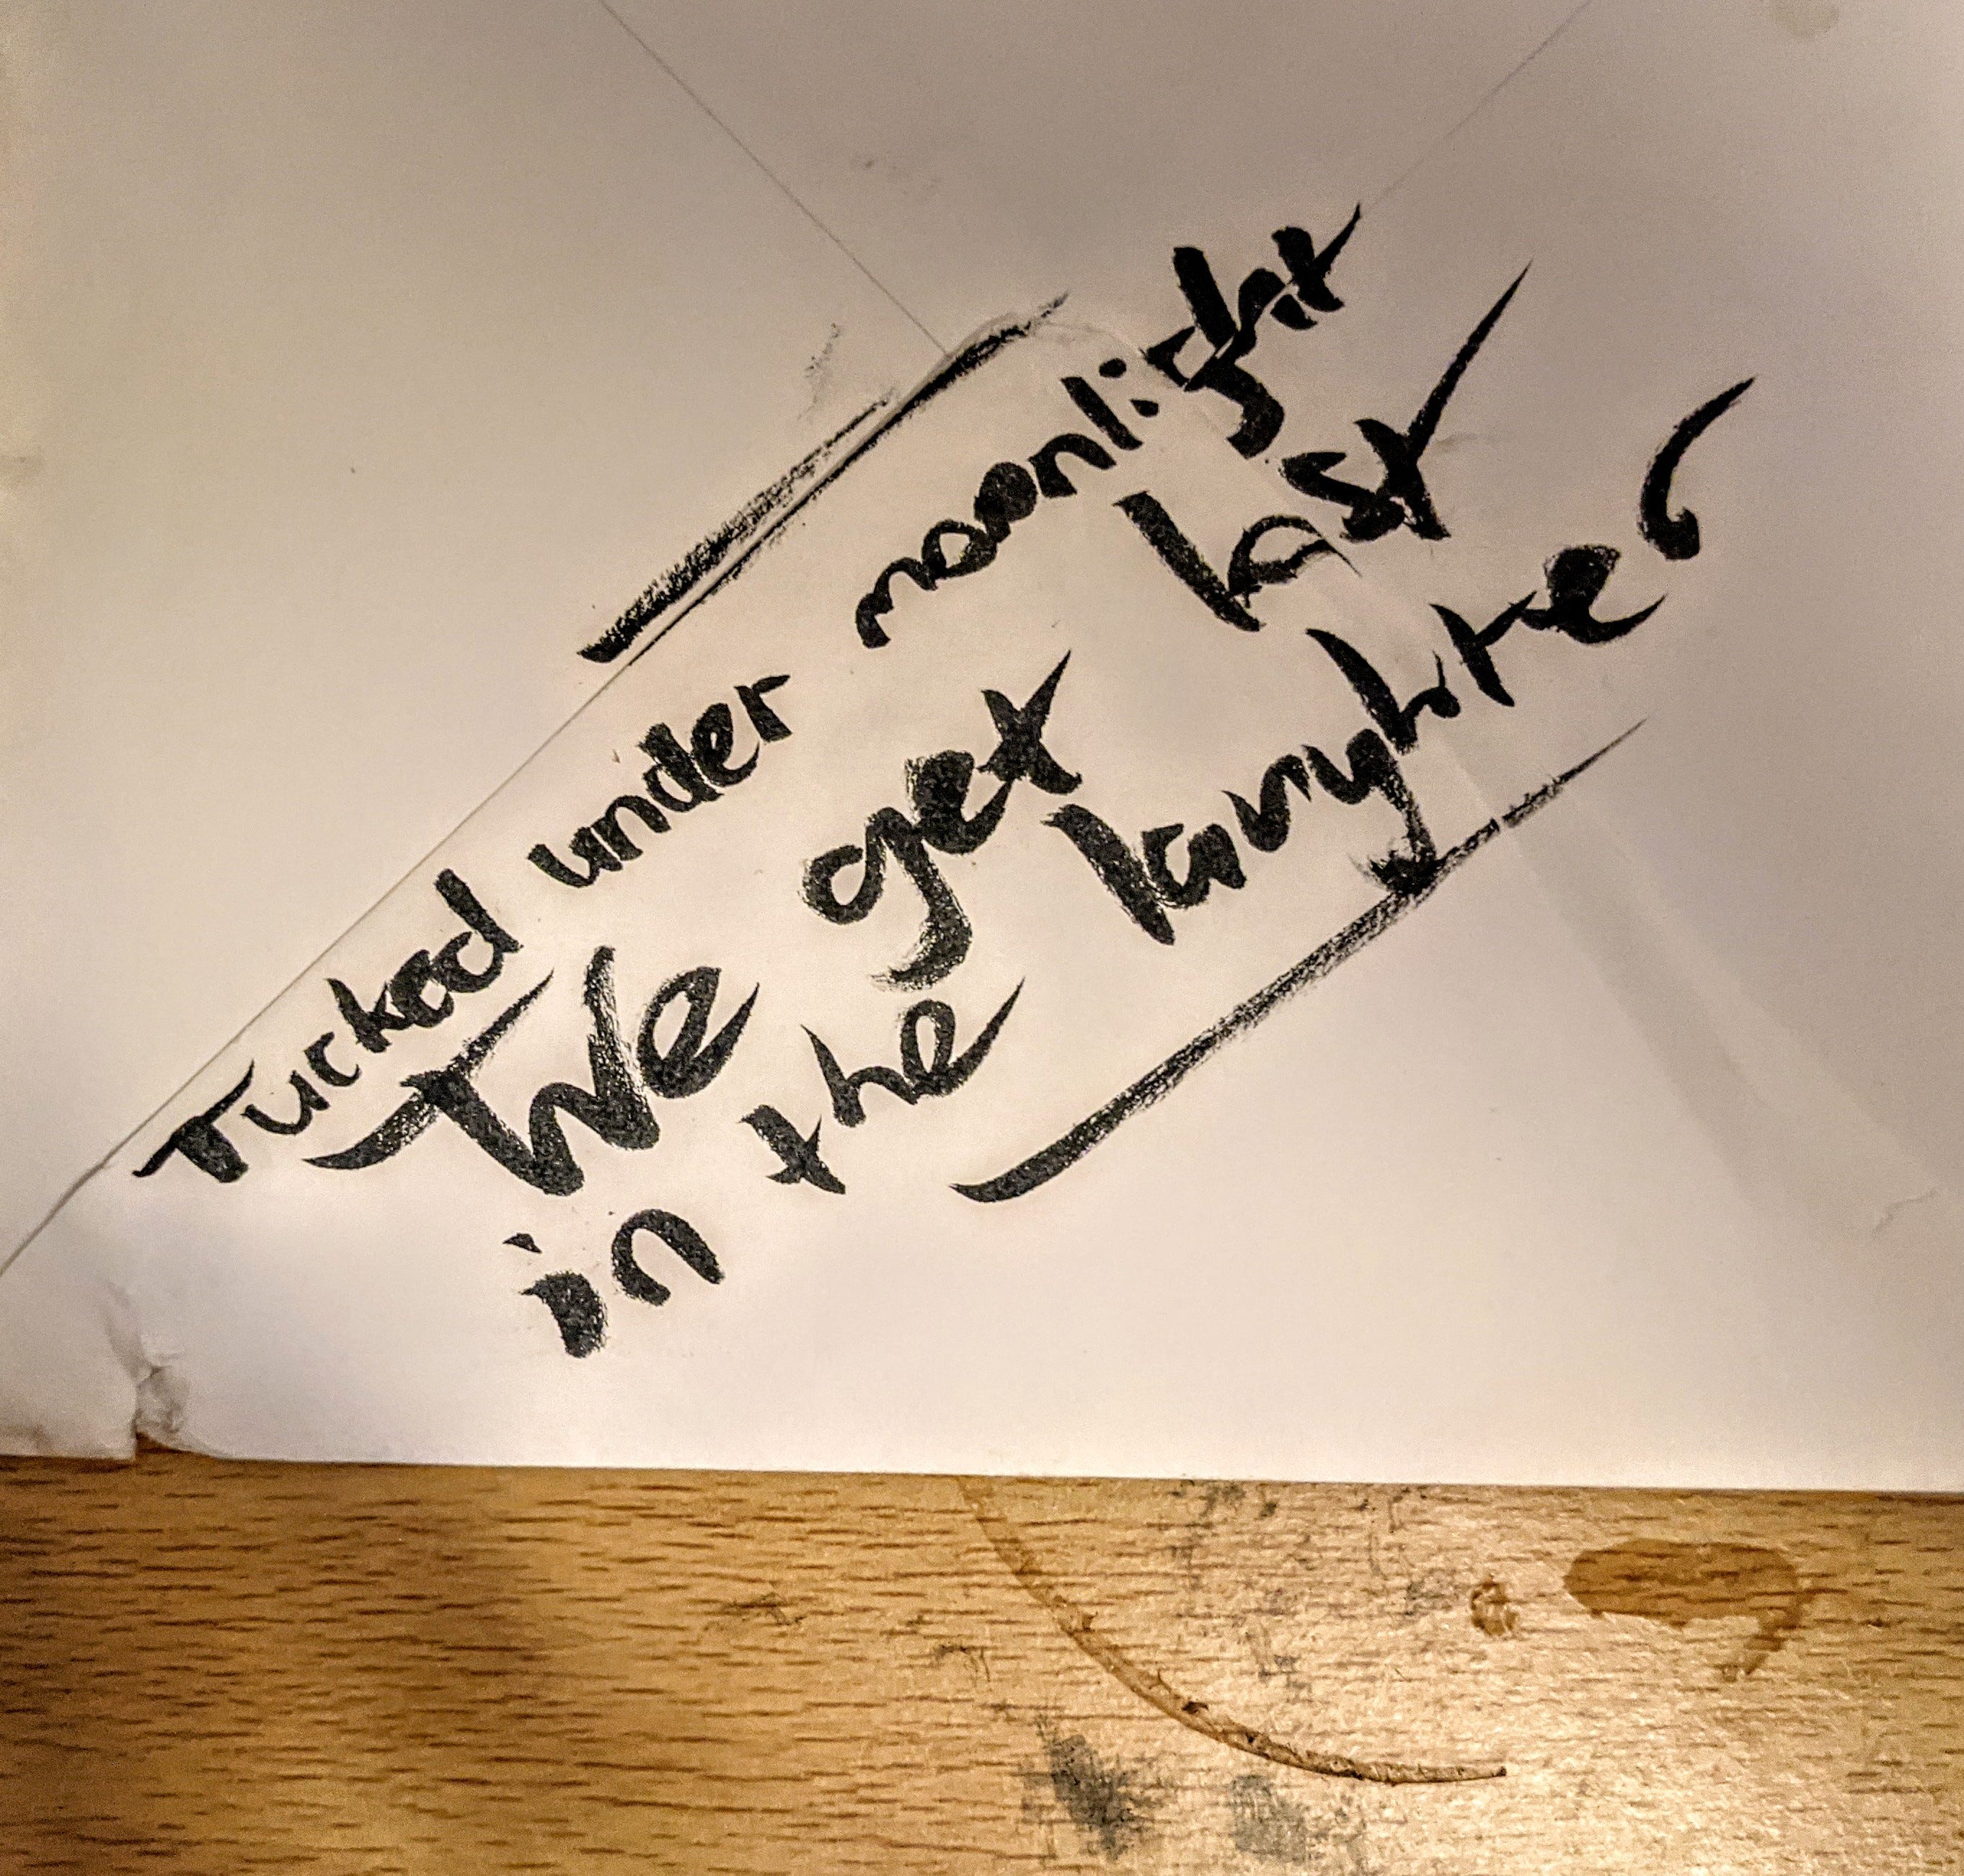 Tucked under moonlight
We get lost
in the laughter